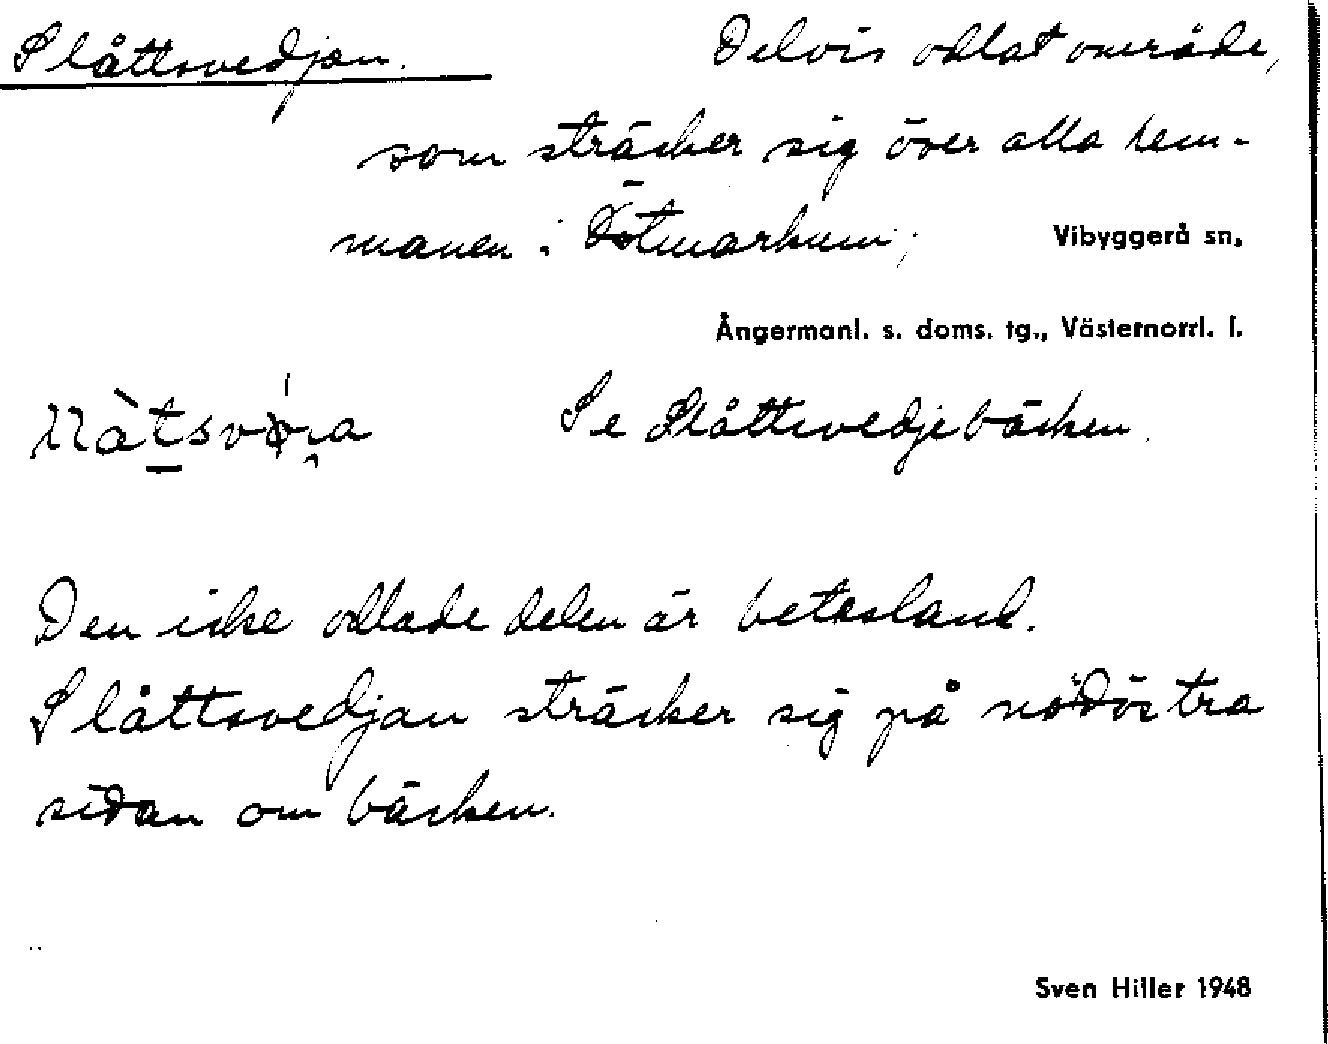 Slåttsvedjan. Delvis odlat område,
som sträcker sig över alla hem-
manen i Östmarkum; Vibyggerå sn,
Ångermanl. s. doms. tg., Västernorrl. l.
Se Slåttsvedjebäcken.
Den icke odlade delen är betesland.
Slåttsvedjan sträcker sig på nödöstra
sidan om bäcken.
Sven Hiller 1948